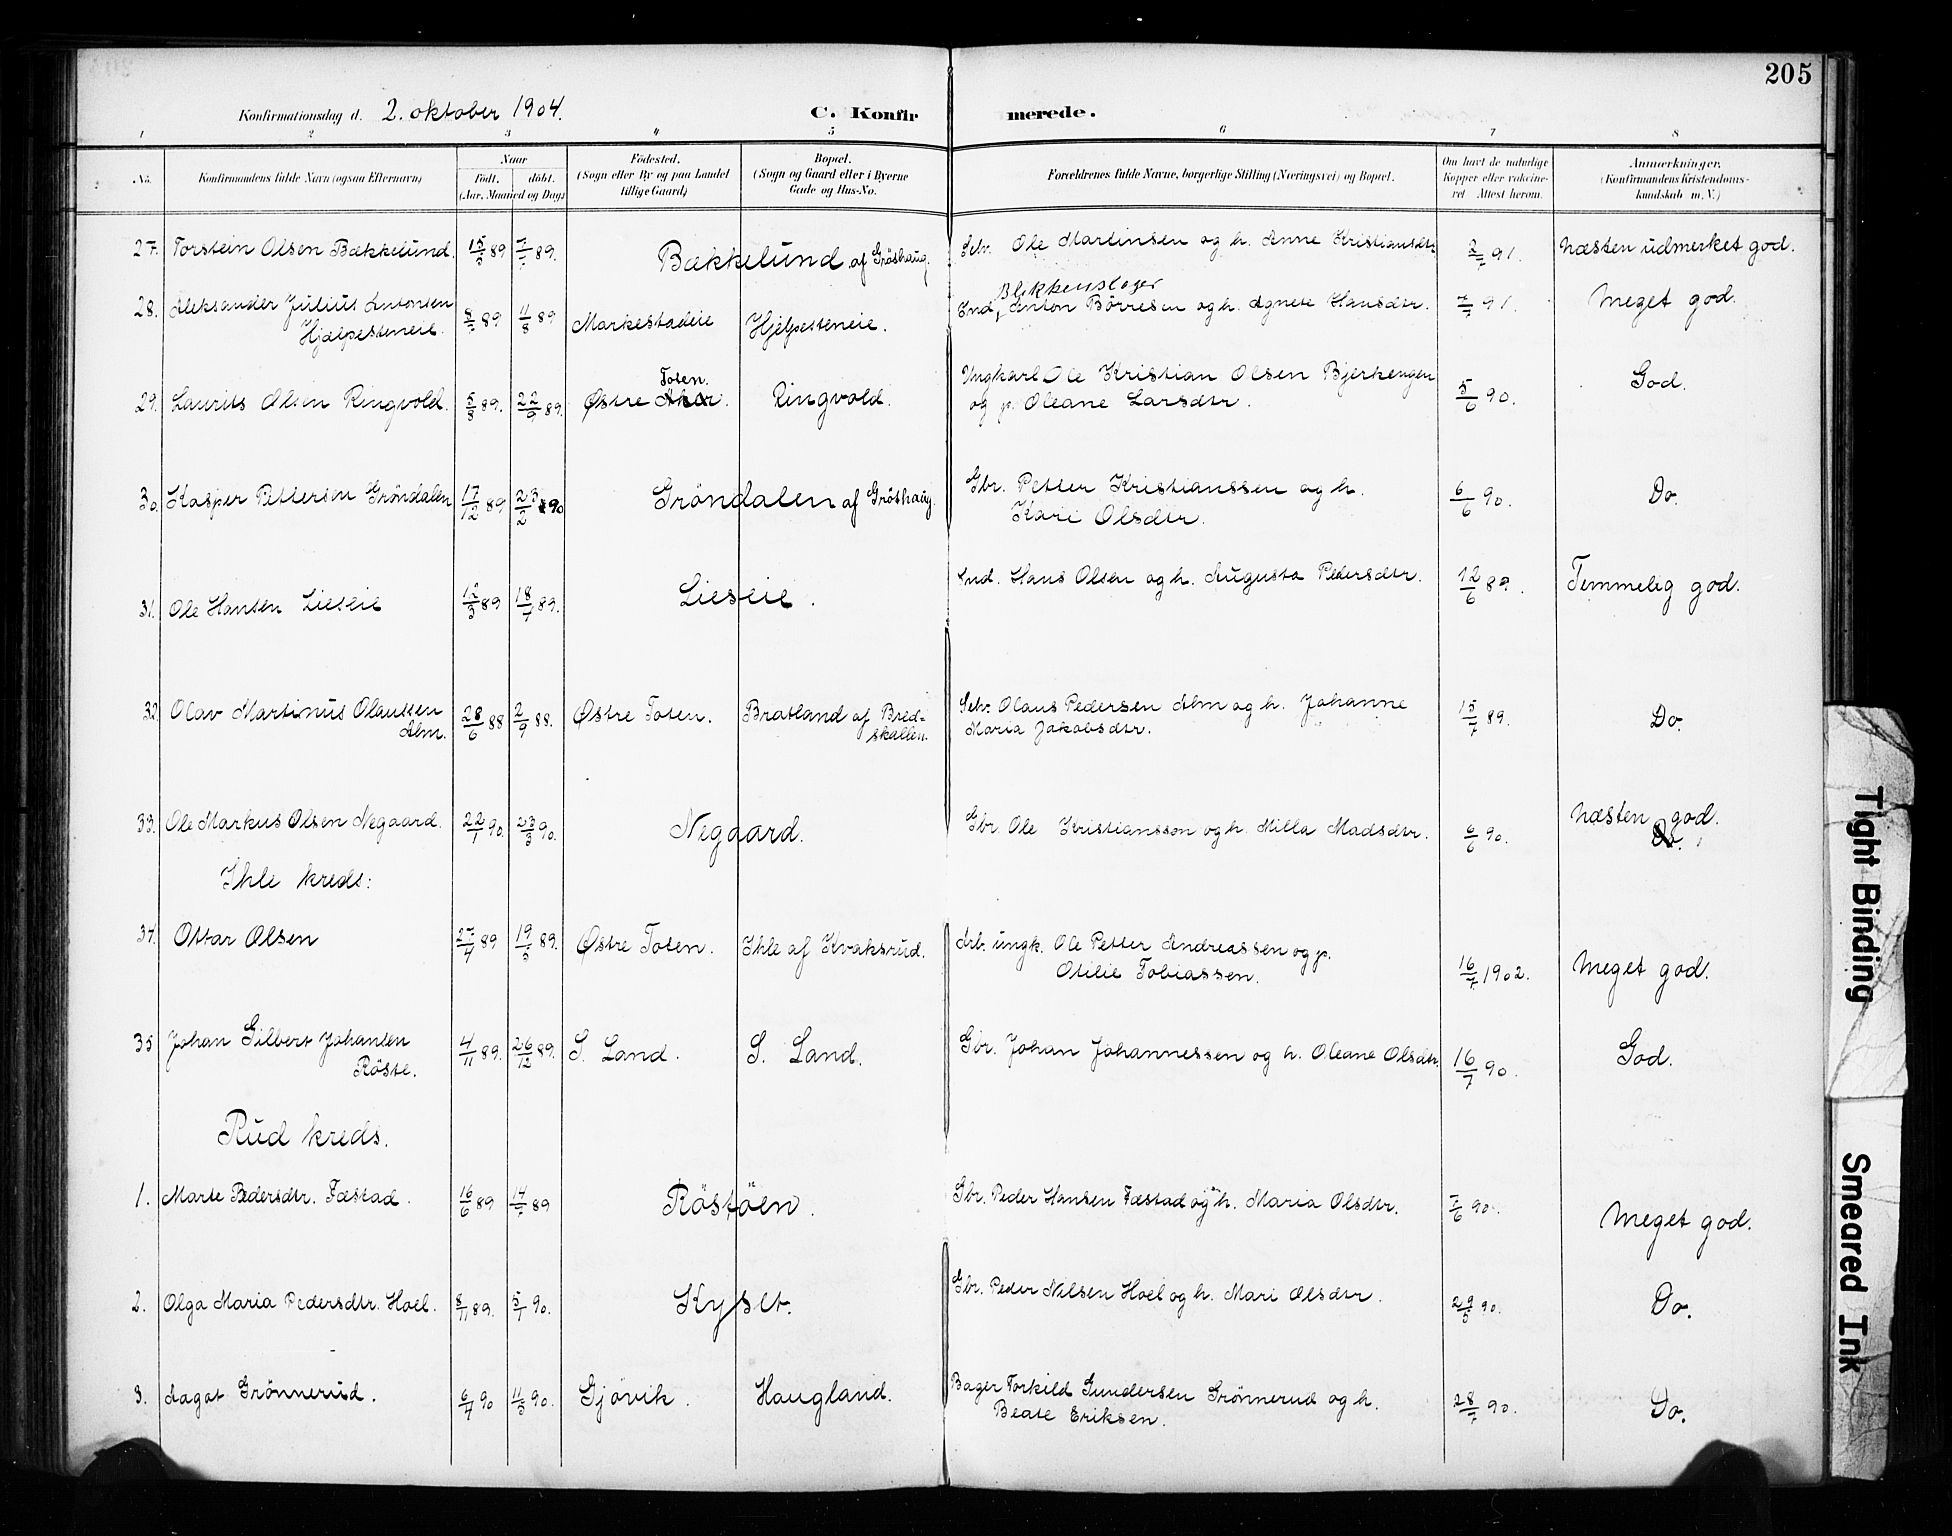 205
Konfirmationsdag d. 2. oktober 1904.
C. Konfirmerede.
1 2 3 4 5 6 7 8
No. Konfirmandens fulde Navn (ogsaa Efternavn) Naar Født. døbt. (Aar, Maaned og Dag) Fødested. (Sogn eller By og paa Landet tillige Gaard) Bopæl. (Sogn og Gaard eller i Byerne Gade og Hus-No. Forældrenes fulde Navne, borgerlige Stilling (Næringsvei) og Bopæl. Om havt de naturlige Kopper eller vakcineret Attest herom. Anmærkninger. (Konfirmandens Kristendomskundskab m. V.)
27. Torstein Olsen Bækkelund. 15/5 89 7/7 89. Bækkelund af Gröshaug. Selv. Ole Martinsen og h. Anne Kristiansdtr. 2/7 91. Næsten udmerket god.
Blikkenslager
28. Aleksander Julius Antonsen 8/7 89 11/8 89 Markestadeie Hjelpesteneie. Ind, Anton Börresen og h. Agnete Hansdtr. 7/7 91. Meget god.
Hjælpesteneie.
Toten.
29. Laurits Olsen Ringvold. 5/8 89. 22/9 89. Østre Ringvold. Ungkarl Ole Kristian Olsen Bjerkengen 5/6 90. God.
og p. Oleane Larsdtr.
30. Kasper Pettersen Gröndalen 17/12 89 23/2 90 Gröndalen af Gröshaug. Gbr. Petter Kristianssen og h. 6/6 90. Do.
Kari Olsdtr.
31. Ole Hansen Lieseie 12/3 89 18/4 89. Lieseie. Ind. Hans Olsen og h. Augusta Pedersdtr. 12/6 89. Temmelig god.
32. Olav Martinus Olaussen 28/6 88 2/9 88. Østre Toten. Bratland af Bred- Selv. Olaus Pedersen Alm og h. Johanne 15/7 89. Do.
Alm. skallen. Maria Jakobsdtr.
33. Ole Markus Olsen Negaard. 22/1 90 23/3 90. Negaard. Gbr. Ole Kristiansson og h. Milla Madsdtr. 6/6 90. Næsten god.
Do.
Ihle kreds:
34. Ottar Olsen 27/4 89 19/5 89. Østre Toten. Ihle af Kvaksrud. Arb. ungk. Ole Petter Andreassen og p. 16/7 1902. Meget god.
Otilie Tobiassen.
35 Johan Gilbert Johansen 4/11 89. 26/12 89. S. Land. S. Land. Gbr. Johan Johannessen og h. Oleane Olsdtr. 16/7 90. God.
Röste.
Rud kreds.
1. Marte Pedersdtr. Fæstad. 16/6 89 14/7 89 Röstöen. Gbr. Peder Hansen Fæstad og h. Maria Olsdtr. 7/6 90. Meget god.
2. Olga Maria Pedersdtr. Hoel. 8/11 89. 5/1 90. Kyset. Gbr. Peder Nilsen Hoel og h. Mari Olsdtr. 29/5 90. Do.
3. Aagot Grönnerud. 6/4 90 11/5 90. Gjövik. Haugland. Bager Torkild Gundersen Grönnerud og h. 28/7 90. Do.
Beate Eriksen.
Tight Binding
Smeared Ink